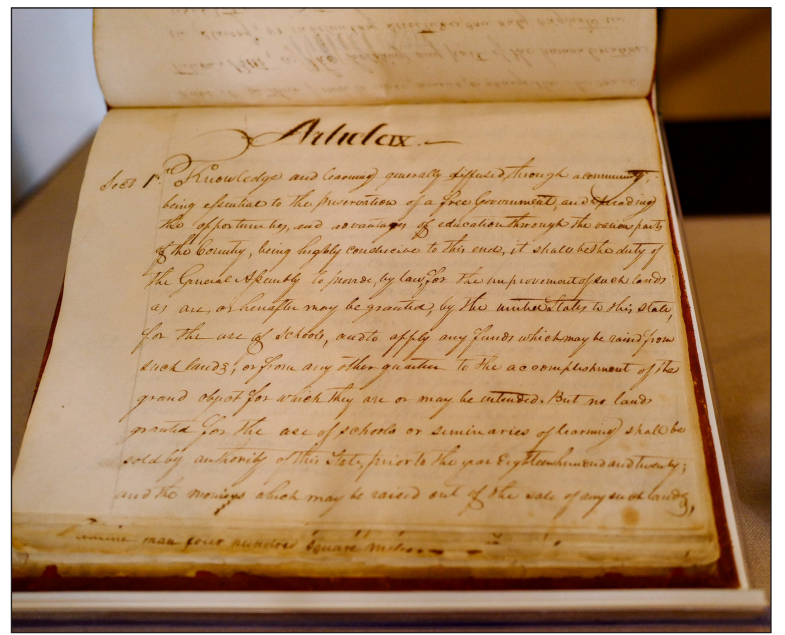 Article ix.
Sect 1st. Knowledge and learning generally diffused, through a community,
being essential to the preservation of a free Government, and spreading
the opportunities, and advantages of education through the various parts
of the Country, being highly conducive to this end, it shall be the duty of
the General Assembly to provide, by law, for the improvement of such lands
as are, or hereafter may be granted, by the united States to this State,
for the use of Schools, and to apply any funds which may be raised from
such lands, or from any other quarter to the accomplishment of the
grand object for which they are or may be intended. But no lands
granted for the use of schools or seminaries of learning shall be
sold by authority of this State, prior to the year Eighteen hundred and twenty;
and the monies which may be raised out of the sale of any such lands,
than four hundred square miles